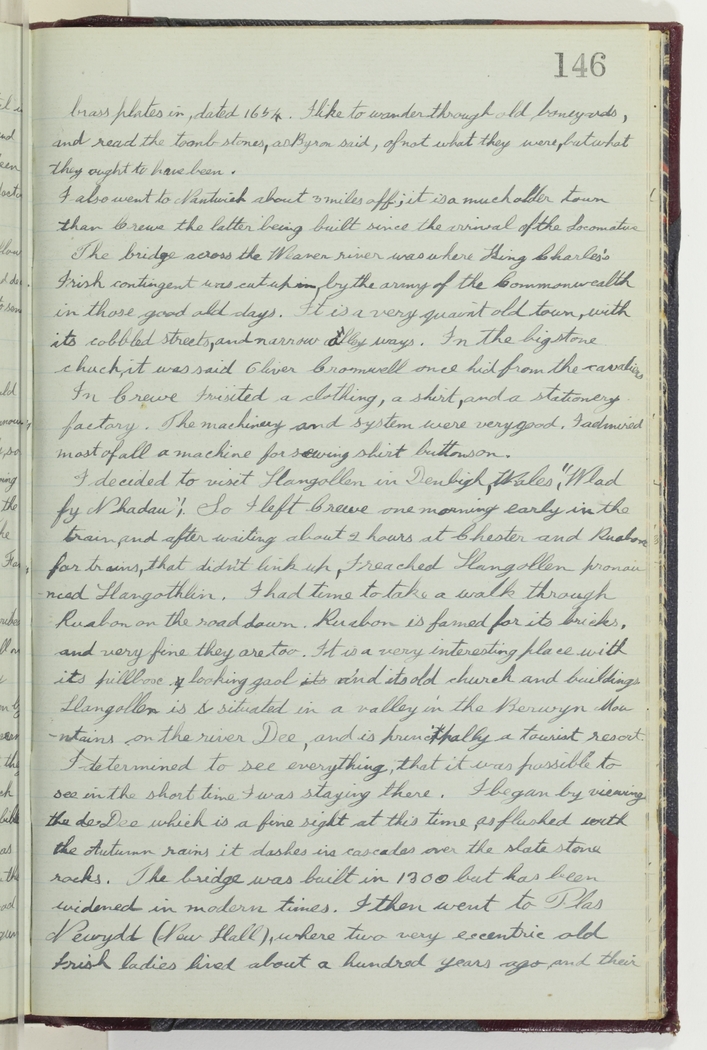 146
brass plates in, dated 1654. I like to wander through old boneyards,
and read the tomb stones, as Byron said, of not what they were, but what
they ought to have been.
I also went to Nantwich about 3 miles off; it is a much older town
than Crewe the latter being built since the arrival of the Locomotive
The bridge across the Weaver river was where King Charles's
Irish contingent was cut up in, by the army of the Commonwealth
in those good old days. It is a very quaint old town, with
its cobbled streets, and narrow alley ways. In the big stone
chuch, it was said Oliver Cromwell once hid from the cavaliers
In Crewe I visited a clothing, a shirt, and a stationery
factory. The machinery and system were very good. I admired
most of all a machine for sewing shirt buttons on.
I decided to visit Llangollen in Denbigh, Wales, "Wlad
fy Nhadau"! So I left Crewe one morning early in the
train, and after waiting about 2 hours at Chester and Ruabon
for trains, that didn't link up, I reached Llangollen pronou
-nced Llangothlin. I had time to take a walk through
Ruabon on the road down. Ruabon is famed for its bricks,
and very fine they are too. It is a very interesting place with
its pillbox looking gaol its and its old church and buildings
Llangollen is s situated in a valley in the Berwyn Mou
-ntains on the river Dee, and is principally a tourist resort.
I determined to see everything, that it was possible to
see in the short time I was staying there. I began by viewing
the de Dee which is a fine sight at this time, as flushed with
the Autumn rains it dashes in cascades over the slate stone
rocks. The bridge was built in 1300 but has been
widened in modern times. I then went to Plas
Newydd (New Hall), where two very eccentric old
Irish ladies lived about a hundred years ago, and their